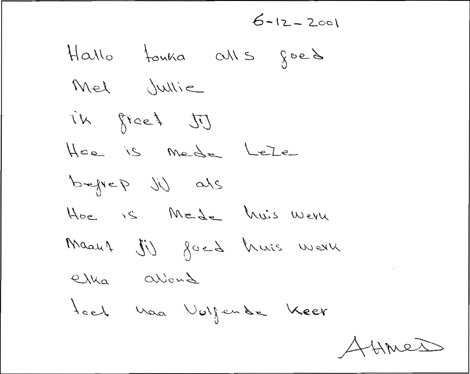 6-12-2001
Hallo touka alls goed
Met Jullie
ik groet JIJ
Hoe is mede Leze
begrep JIJ als
Hoe is Mede huis werk
Maakt JIJ goed huis werk
elka avond
toet naa Volgende Keer
AHMED